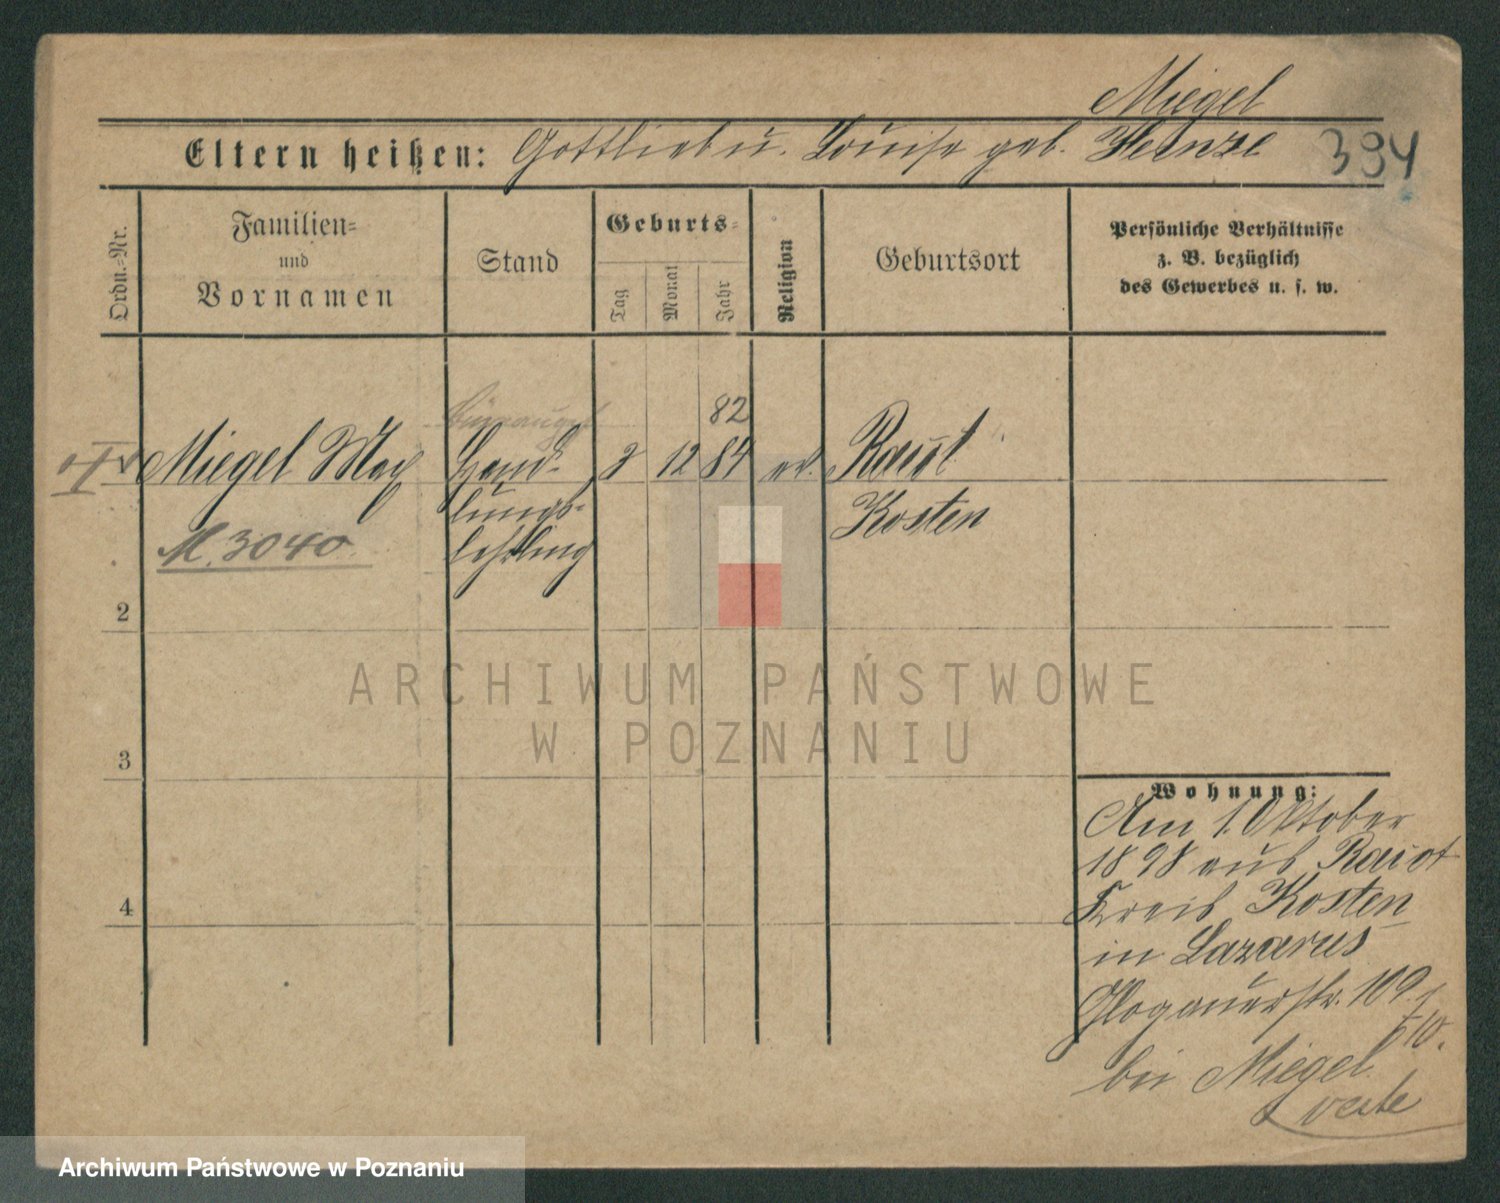 Miegel
Eltern heißen: Gottlieb u. Louise geb. Heinze
394
Ordn.-Nr.
Familien-
und
Vornamen
Stand
Geburts-
Tag
Monat
Jahr
Religion
Geburtsort
Persönliche Verhältnisse
z. B. bezüglich
des Gewerbes u. s. w.
82
Miegel Max Hand- 3 12 84 ev. Raiot
lungs- Kosten
M. 3040 lehrling
2
3
4
ARCHIWUM PAŃSTWOWE
W POZNANIU
Wohnung:
Am 1. Oktober
1898 aus Raiot
Kreis Kosten
in Lazarus
Glogauerstr. 109.
1/10.
bei Miegel
verte
Archiwum Państwowe w Poznaniu